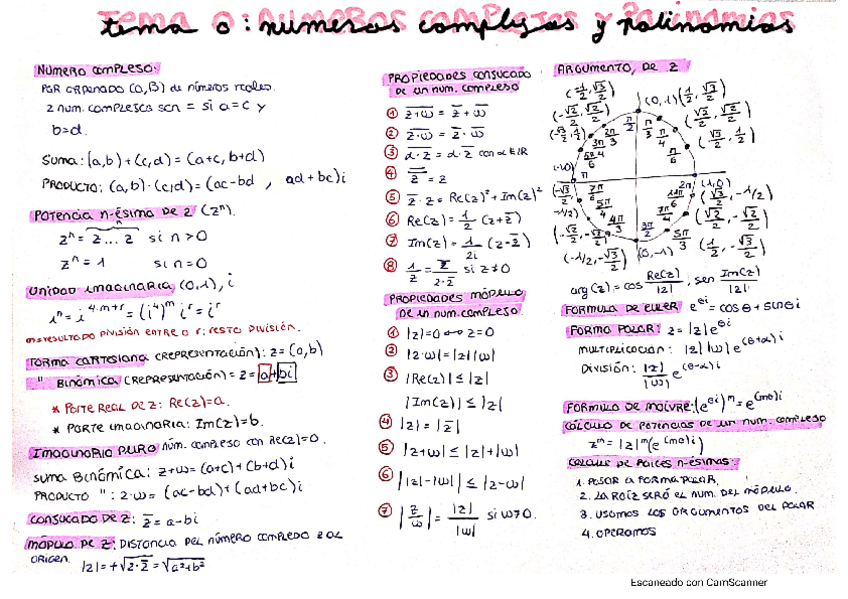 tema 0: numeros complejos y polinomios
NÚMERO COMPLEJO:
PAR ORDENADO (a,B) de números reales.
2 num. complejos son = si a=c y
b=d.
SUMA: (a,b)+(c,d)=(a+c, b+d)
PRODUCTO: (a,b)·(c,d)=(ac-bd , ad+bc)i
POTENCIA n-ésima DE Z (Zⁿ).
zⁿ = z...z si n>0
zⁿ = 1 si n=0
UNIDAD IMAGINARIA (0,1), i
iⁿ = i^(4·m+r) = (i⁴)^m i^r = i^r
m=RESULTADO DIVISIÓN ENTRE 4 r: RESTO DIVISIÓN.
FORMA CARTESIANA (REPRESENTACIÓN): z=(a,b)
" BINÓMICA (REPRESENTACIÓN) = z=a+bi
* PARTE REAL DE Z: Re(z)=a.
* PARTE IMAGINARIA: Im(z)=b.
IMAGINARIO PURO núm. complejo con Re(z)=0.
SUMA BINÓMICA: z+ω=(a+c)+(b+d)i
PRODUCTO ": z·ω=(ac-bd)+(ad+bc)i
CONJUGADO DE Z: z̅=a-bi
MÓDULO DE Z: DISTANCIA DEL NÚMERO COMPLEJO Z AL
ORIGEN. |z|=+√(z·z̅)=√(a²+b²)
PROPIEDADES CONJUGADO
DE UN NUM. COMPLEJO
① z̅+̅ω̅ = z̅ + ω̅
② z̅·̅ω̅ = z̅ · ω̅
③ α̅·̅z̅ = α·z̅ con α∈ℝ
④ z̿ = z
⑤ z·z̅ = Re(z)²+Im(z)²
⑥ Re(z)=1/2 (z+z̅)
⑦ Im(z)=1/2i (z-z̅)
⑧ 1/z = z̅/z·z̅ si z≠0
PROPIEDADES MÓDULO
DE UN NUM. COMPLEJO
① |z|=0 ↔ z=0
② |z·ω|=|z||ω|
③ |Re(z)| ≤ |z|
|Im(z)| ≤ |z|
④ |z|=|z̅|
⑤ |z+ω| ≤ |z|+|ω|
⑥ ||z|-|ω|| ≤ |z-ω|
⑦ |z/ω| = |z|/|ω| si ω≠0.
ARGUMENTO, DE Z
(-1/2, √3/2) (0,1) (1/2, √3/2)
(-√2/2, √2/2) π/2 π/3 (√2/2, √2/2)
(-√3/2, 1/2) 2π/3 3π/4 5π/6 π/4 π/6 (√3/2, 1/2)
(-1,0) π 2π (1,0)
(-√3/2, -1/2) 7π/6 5π/4 4π/3 11π/6 7π/4 (√3/2, -1/2)
(-√2/2, -√2/2) 3π/2 5π/3 (√2/2, -√2/2)
(-1/2, -√3/2) (0,-1) (1/2, -√3/2)
arg(z)=cos Re(z)/|z| , sen Im(z)/|z|
FORMULA DE EULER e^(θi)=cosθ+sinθi
FORMA POLAR: z=|z|e^(θi)
MULTIPLICACIÓN: |z||ω|e^((θ+α)i)
DIVISIÓN: |z|/|ω| e^((θ-α)i)
FORMULA DE MOIVRE: (e^(θi))^m=e^((mθ)i)
CÁLCULO DE POTENCIAS DE UN NUM. COMPLEJO
z^m=|z|^m(e^((mθ)i))
CÁLCULO DE RAÍCES n-ÉSIMAS:
1. PASAR A FORMA POLAR.
2. LA RAÍZ SERÁ EL NUM. DEL MÓDULO.
3. USAMOS LOS ARGUMENTOS DEL POLAR
4. OPERAMOS
Escaneado con CamScanner